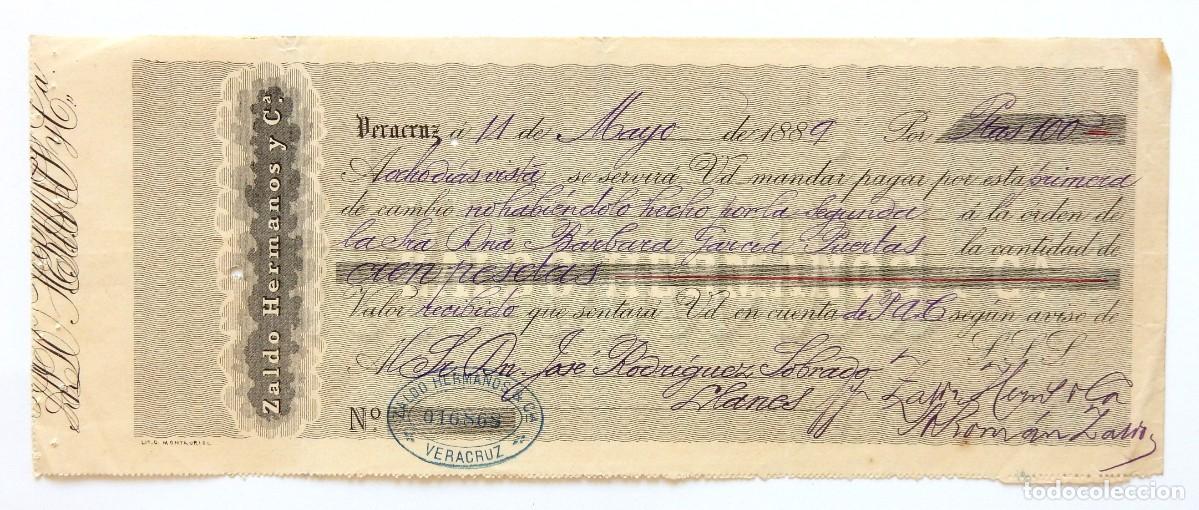 Zaldo Hermanos y Cª.
Veracruz á 11 de Mayo de 1889 Por Ptas 100
A ocho días vista se servirá Vd mandar pagar por esta primera
de cambio no habiéndolo hecho por la segunda á la orden de
la Sra Dña Bárbara García Puertas la cantidad de
cien pesetas
ZALDO HERMANOS Y Cª
Valor recibido que sentará Vd en cuenta de P.A.C según aviso de
S.S.S.
Al Sr. Dn. José Rodríguez Sobrado
Llanes
Zaldo Herms & Ca
Román Zaldo
Nº 016868
ZALDO HERMANOS & Cª
VERACRUZ
LIT. C. MONTAURIOL
todocoleccion